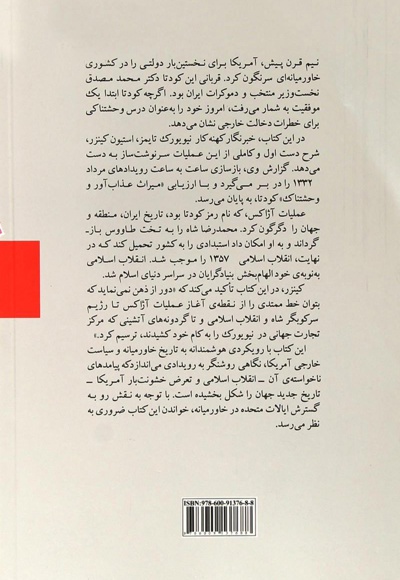 نیم قرن پیش، آمریکا برای نخستین‌بار دولتی را در کشوری
خاورمیانه‌ای سرنگون کرد. قربانی این کودتا دکتر محمد مصدق
نخست‌وزیر منتخب و دموکرات ایران بود. اگرچه کودتا ابتدا یک
موفقیت به شمار می‌رفت، امروز خود را به‌عنوان درس وحشتناکی
برای خطرات دخالت خارجی نشان می‌دهد.
در این کتاب، خبرنگار کهنه‌کار نیویورک تایمز، استیون کینزر،
شرح دست اول و کاملی از این عملیات سرنوشت‌ساز به دست
می‌دهد. گزارش وی، بازسازی ساعت به ساعت رویدادهای مرداد
۱۳۳۲ را در بر می‌گیرد و با ارزیابی «میراث عذاب‌آور و
وحشتناک» کودتا، به پایان می‌رسد.
عملیات آژاکس، که نام رمز کودتا بود، تاریخ ایران، منطقه و
جهان را دگرگون کرد. محمدرضا شاه را به تخت طاووس باز-
گرداند و به او امکان داد استبدادی را به کشور تحمیل کند که در
نهایت، انقلاب اسلامی ۱۳۵۷ را موجب شد. انقلاب اسلامی
به‌نوبه‌ی خود الهام‌بخش بنیادگرایان در سراسر دنیای اسلام شد.
کینزر، در این کتاب تأکید می‌کند که «دور از ذهن نمی‌نماید که
بتوان خط ممتدی را از نقطه‌ی آغاز عملیات آژاکس تا رژیم
سرکوبگر شاه و انقلاب اسلامی و تا گردونه‌های آتشینی که مرکز
تجارت جهانی در نیویورک را به کام خود کشیدند، ترسیم کرد.»
این کتاب با رویکردی هوشمندانه به تاریخ خاورمیانه و سیاست
خارجی آمریکا، نگاهی روشنگر به رویدادی می‌اندازد که پیامدهای
ناخواسته‌ی آن ــ انقلاب اسلامی و تعرض خشونت‌بار آمریکا ــ
تاریخ جدید جهان را شکل بخشیده است. با توجه به نقش رو به
گسترش ایالات متحده در خاورمیانه، خواندن این کتاب ضروری به
نظر می‌رسد.
ISBN: 978-600-91376-8-8